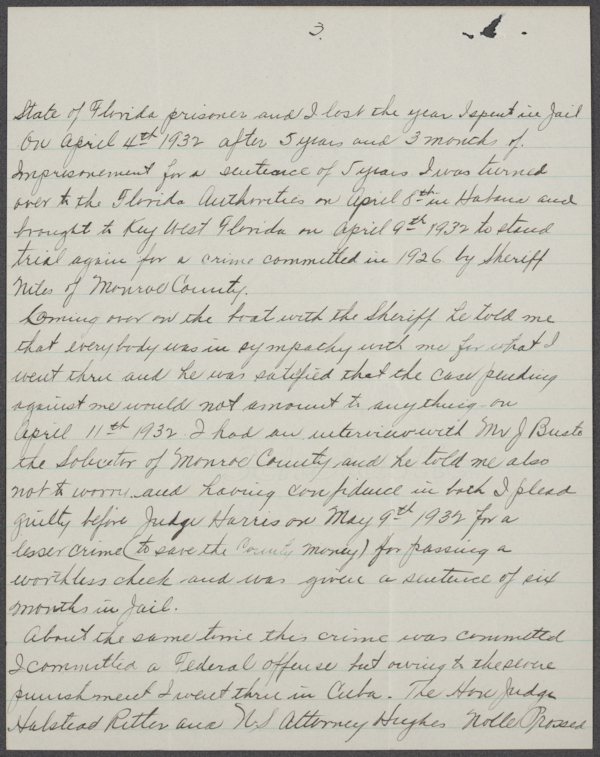 3.
State of Florida prisoner and I lost the year I spent in Jail
On April 4th 1932 after 5 years and 3 months of
Imprisonement for a sentence of 5 years I was turned
over to the Florida Authorities on April 8th in Habana and
brought to Key West Florida on April 9th 1932 to stand
trial again for a crime committed in 1926 by Sheriff
Niles of Monroe County.
Coming over on the boat with the Sheriff he told me
that everybody was in sympathy with me for what I
went thru and he was satified that the case pending
against me would not amount to anything on
April 11th 1932 I had an interview with Mr J Busto
the Solicitor of Monroe County and he told me also
not to worry and having confidence in both I plead
guilty before Judge Harris on May 9th 1932 for a
lesser crime (to save the County money) for passing a
worthless check and was given a sentence of six
months in Jail.
About the same time this crime was committed
I committed a Federal offense but owing to the severe
punishment I went thru in Cuba. The Hon Judge
Halstead Ritter and U S Attorney Hughes Nolle Prossed